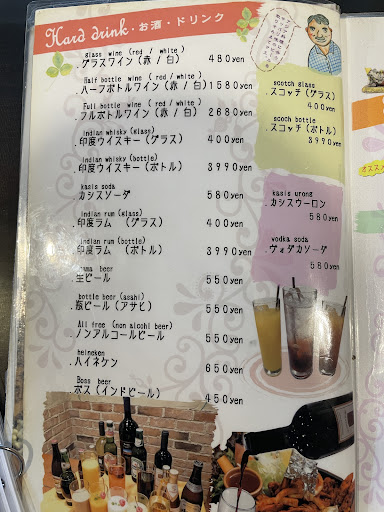 Hard drink・お酒・ドリンク
glass wine (red / white)
グラスワイン (赤 / 白) 480yen
Half bottle wine (red / white)
ハーフボトルワイン (赤 / 白) 1580yen
Full bottle wine (red / white)
フルボトルワイン (赤 / 白) 2680yen
indian whisky (glass)
印度ウイスキー (グラス) 400yen
indian whisky (bottle)
印度ウイスキー (ボトル) 3990yen
kasis soda
カシスソーダ 580yen
indian rum (glass)
印度ラム (グラス) 400yen
indian rum (bottle)
印度ラム (ボトル) 3990yen
nama beer
生ビール 550yen
bottle beer (asahi)
瓶ビール (アサヒ) 550yen
All free (non alcohl beer)
ノンアルコールビール 550yen
heineken
ハイネケン 650yen
Boss beer
ボス (インドビール) 450yen
scotch glass
スコッチ (グラス)
400yen
scoch bottle
スコッチ (ボトル)
3990yen
kasis urong
カシスウーロン
580yen
vodka soda
ヴォダカソーダ
580yen